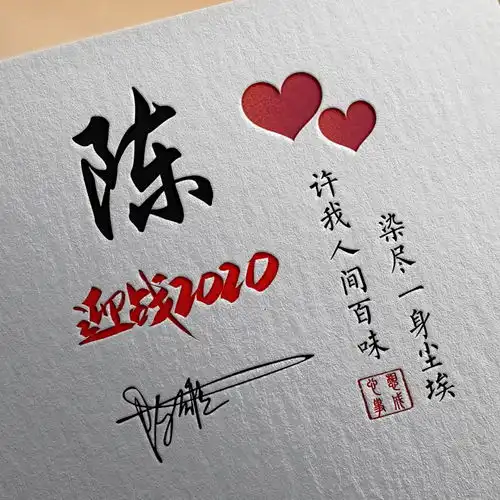 陈
迎战2020
许我人间百味
染尽一身尘埃
心想
事成